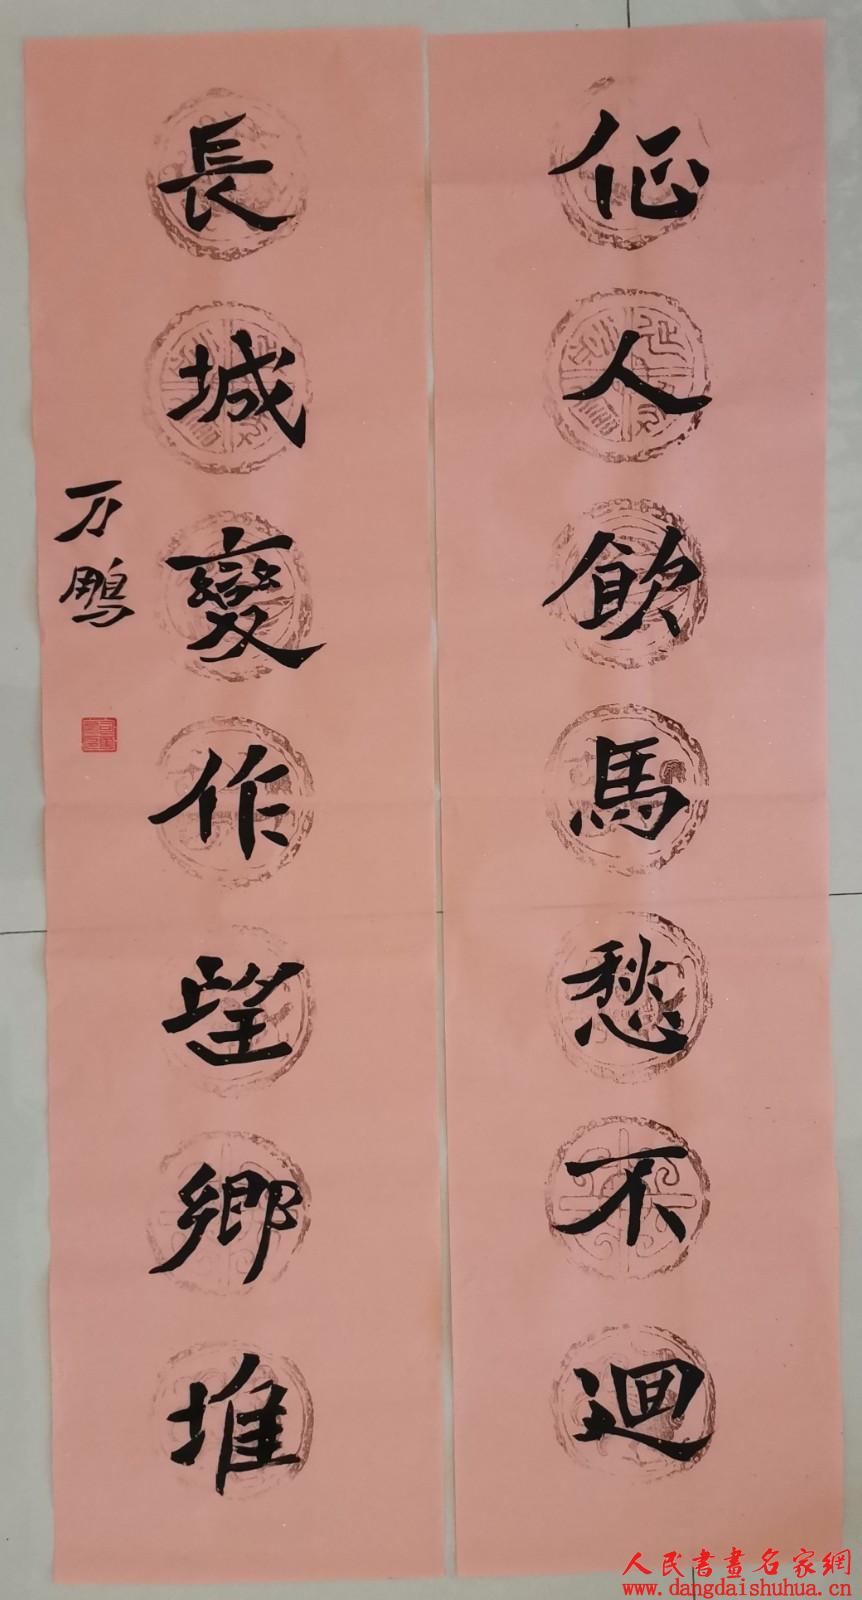 征人飲馬愁不迴
長城變作望鄉堆
万鵬
人民書畫名家網
www.dangdaishuhua.cn